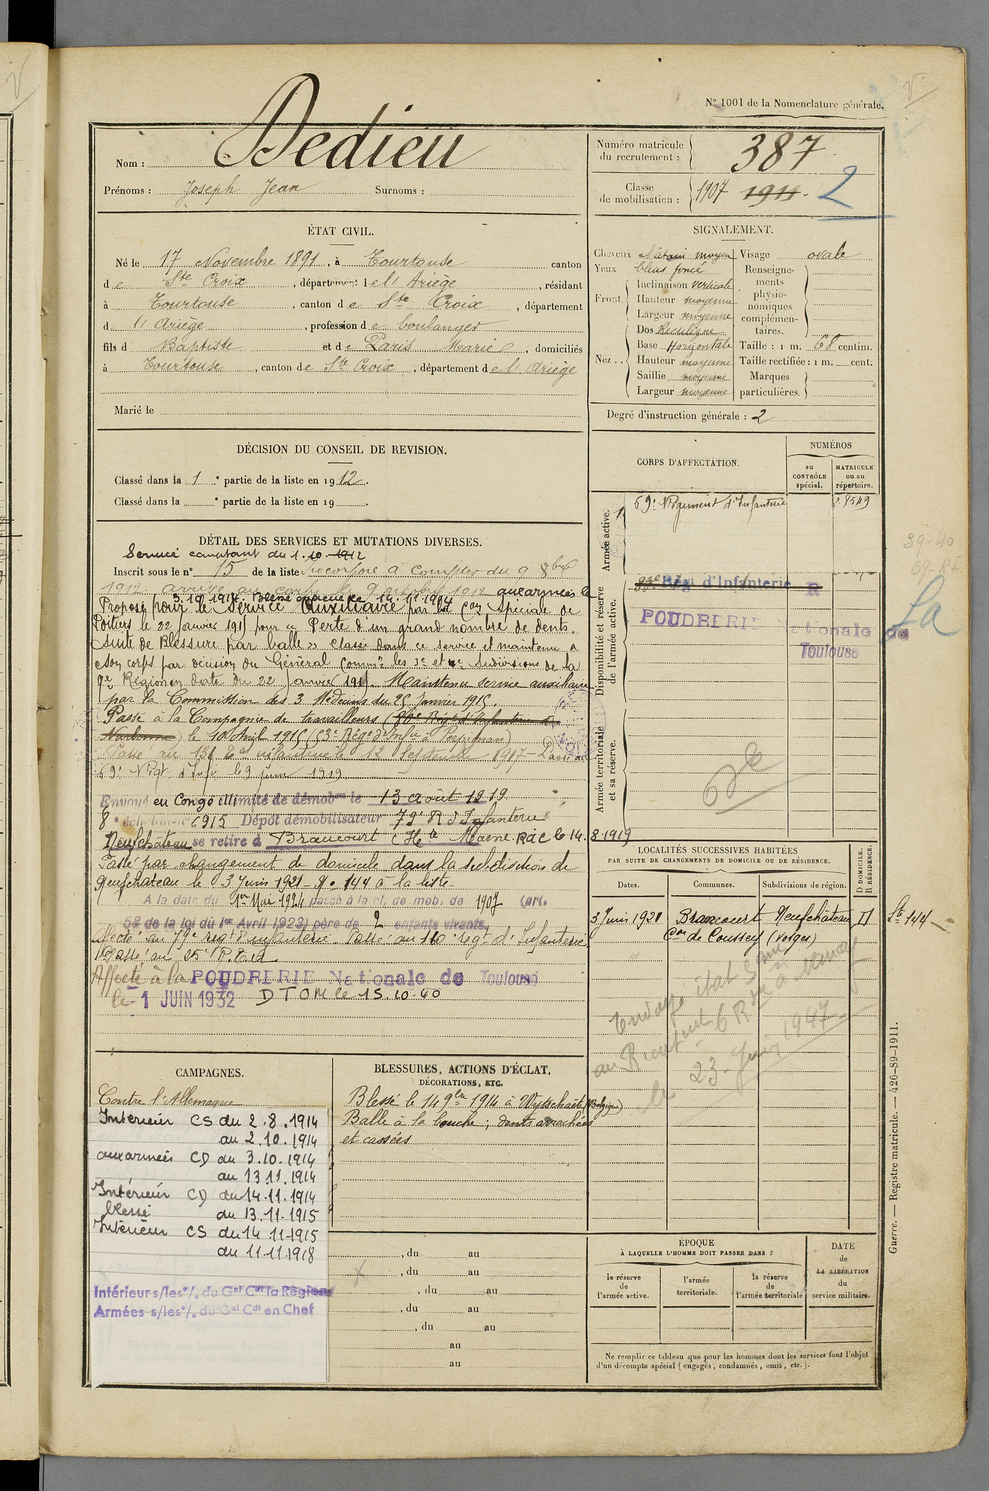 N° 1001 de la Nomenclature générale.
Nom : Dedieu
Prénoms : Joseph Jean Surnoms :
Numéro matricule du recrutement : 387
Classe de mobilisation : 1907 1911 2
ÉTAT CIVIL.
Né le 17 Novembre 1891, à Tourtouse canton
de Ste Croix, département de l'Ariège, résidant
à Tourtouse, canton de Ste Croix, département
d l'Ariège, profession de boulanger
fils d Baptiste et de Paris Marie, domiciliés
à Tourtouse, canton de Ste Croix, département de l'Ariège
Marié le
SIGNALEMENT.
Cheveux châtain moyen
Yeux bleus foncé
Front
Inclinaison verticale
Hauteur moyenne
Largeur moyenne
Nez
Dos Rectiligne
Base Horizontale
Hauteur moyenne
Saillie moyenne
Largeur moyenne
Visage ovale
Renseignements physionomiques complémentaires.
Taille : 1 m. 68 centim.
Taille rectifiée : 1 m. cent.
Marques particulières.
Degré d'instruction générale : 2
DÉCISION DU CONSEIL DE REVISION.
Classé dans la 1e partie de la liste en 1912.
Classé dans la e partie de la liste en 19 .
CORPS D'AFFECTATION.
NUMÉROS
au CONTRÔLE spécial.
MATRICULE ou au répertoire.
Armée active.
59e Régiment d'Infanterie
4549
Disponibilité et réserve de l'armée active.
Rég d'Infanterie R
POUDRERIE Nationale de
Toulouse
Armée territoriale et sa réserve.
39-40
La
DÉTAIL DES SERVICES ET MUTATIONS DIVERSES.
Service comptant du 1.10.1912
Inscrit sous le n° 15 de la liste Incorporé à compter du 9 8bre
1912 arrivé au corps le 9 octobre 1912 aux armées le
3.10.1914. Blessé
Proposé pour le Service Auxiliaire par la Con Spéciale de
Poitiers le 22 janvier 1915 pour « Perte d'un grand nombre de dents.
Suite de Blessure par balle » classé dans ce service et maintenu à
son corps par décision du Général Commt les 3e et 4e Subdivisions de la
9e Région en date du 22 janvier 1915. Maintenu service auxiliaire
par la Commission des 3 Médecins du 25 janvier 1915.
Passé à la Compagnie de travailleurs
Narbonne) le 10 Avril 1915 (53e Régt d'Infie à Perpignan)
Passé au d'infanterie le 12 Septembre 1917 - Passé au
59e Régt d'Infie le 9 juin 1919
Envoyé en Congé illimité de démobon le 13 août 1919.
Dépôt démobilisateur 79e R d'Infanterie
se retire à Braucourt Hte Marne RàC le 14.8.1919
Neufchâteau
Passé par changement de domicile dans la subdivision de
Neufchâteau le 3 Juin 1921 - N° 144 à la liste
A la date du 1er Mai 1924 passé à la cl. de mob. de 1907 (art.
58 de la loi du 1er Avril 1923) père de 2 enfants vivants,
Affecté au 79e régt d'infanterie. Passé au 110 régt d'Infanterie
Passé au
Affecté à la POUDRERIE Nationale de Toulouse
le 1 JUIN 1932 DTOM le 15.10.40
LOCALITÉS SUCCESSIVES HABITÉES
PAR SUITE DE CHANGEMENTS DE DOMICILE OU DE RÉSIDENCE.
Dates. Communes. Subdivisions de région. D DOMICILE. R RÉSIDENCE.
3 Juin 1921 Braucourt Neufchâteau D
Con de Coussey (Vosges)
144
Envoyé état
le 23 Juin 1947
CAMPAGNES.
Contre l'Allemagne
Intérieur CS du 2.8.1914
au 2.10.1914
aux armées CD du 3.10.1914
au 13.11.1914
Intérieur CD du 14.11.1914
blessé au 13.11.1915
Intérieur CS du 14.11.1915
au 11.11.1918
Intérieur s/les °/. du Gal Cdt la Région
Armées s/les °/. du Gal Cdt en Chef
BLESSURES, ACTIONS D'ÉCLAT,
DÉCORATIONS, ETC.
Blessé le 14 9bre 1914 à Wytschaete (Belgique)
Balle à la bouche ; dents arrachées
et cassées
, du au
, du au
, du au
, du au
, du au
au
au
ÉPOQUE
À LAQUELLE L'HOMME DOIT PASSER DANS :
la réserve de l'armée active.
l'armée territoriale.
la réserve de l'armée territoriale
DATE de LA LIBÉRATION du service militaire.
Ne remplir ce tableau que pour les hommes dont les services font l'objet
d'un décompte spécial (engagés, condamnés, omis, etc.).
Guerre. — Registre matricule. — 426-89-1911.